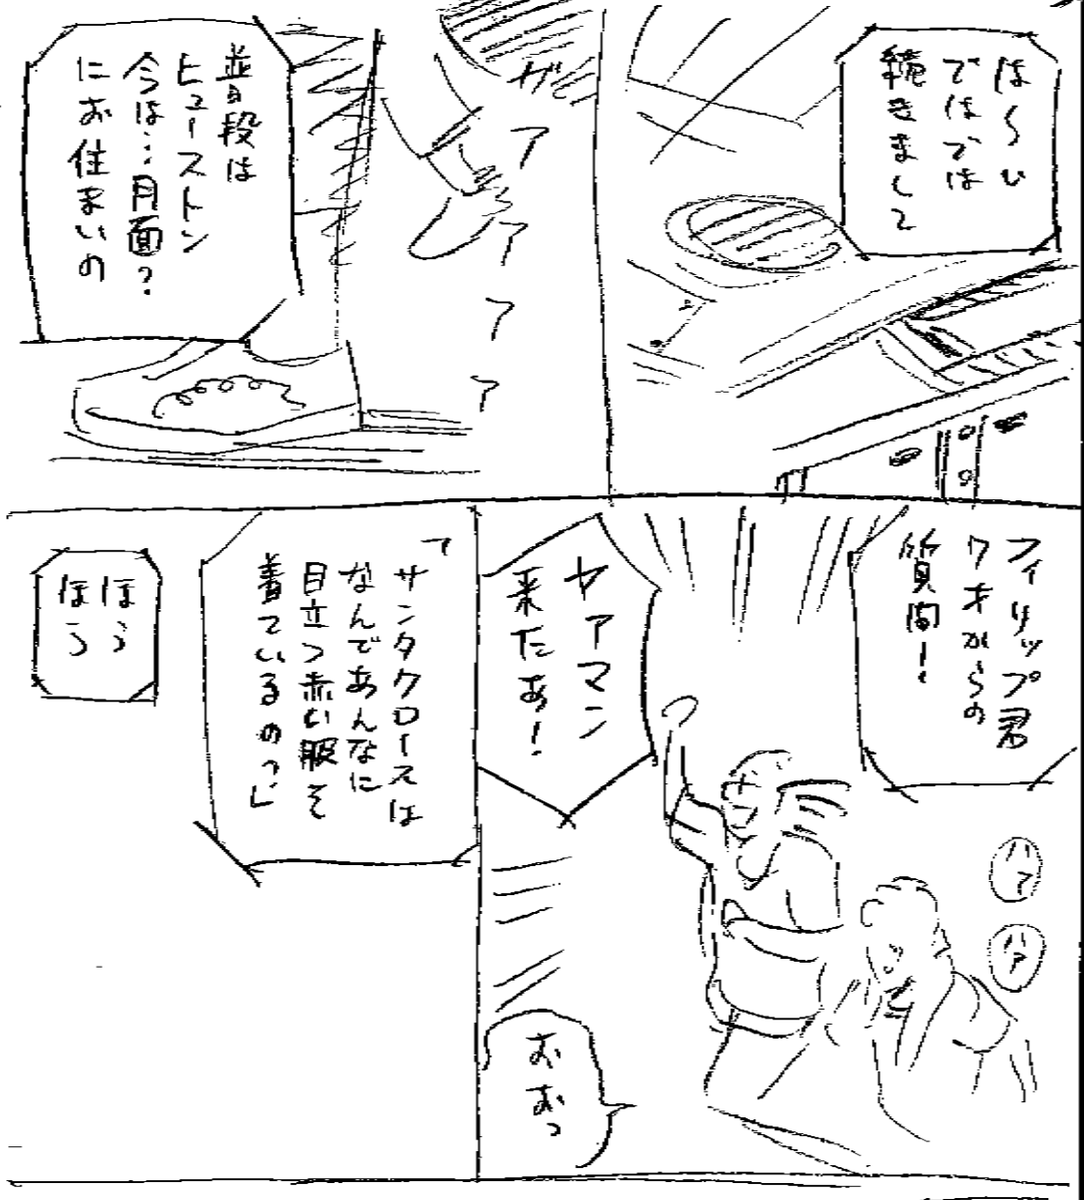 は〜い
ではでは
続きまして
ザアアアア
普段は
ヒューストン
今は…月面?
にお住まいの
フィリップ君
7才からの
質問!
ハア
ハア
ヤアマン
来たあ!
おおっ
「サンタクロースは
なんであんなに
目立つ赤い服を
着ているの?」
ほう
ほう